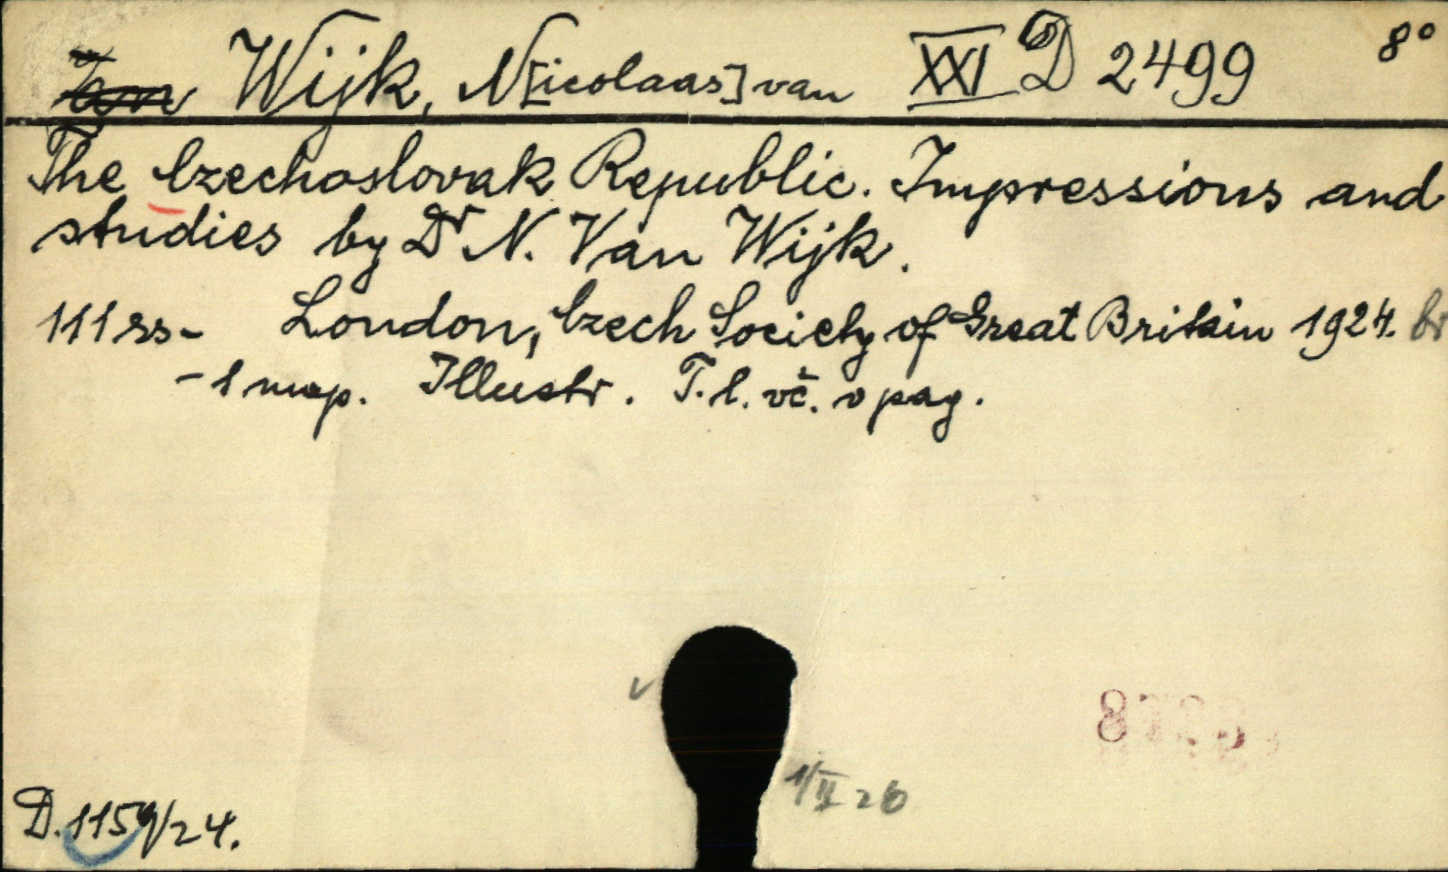 Wijk, N[icolaas] van XXI D 2499 8°
The Czechoslovak Republic. Impressions and
studies by Dr N. Van Wijk.
111 ss - London, Czech Society of Great Britain 1924. br
- 1 map. Illustr. T. l. vč. v pag.
1/II 26
D. 1159/24.